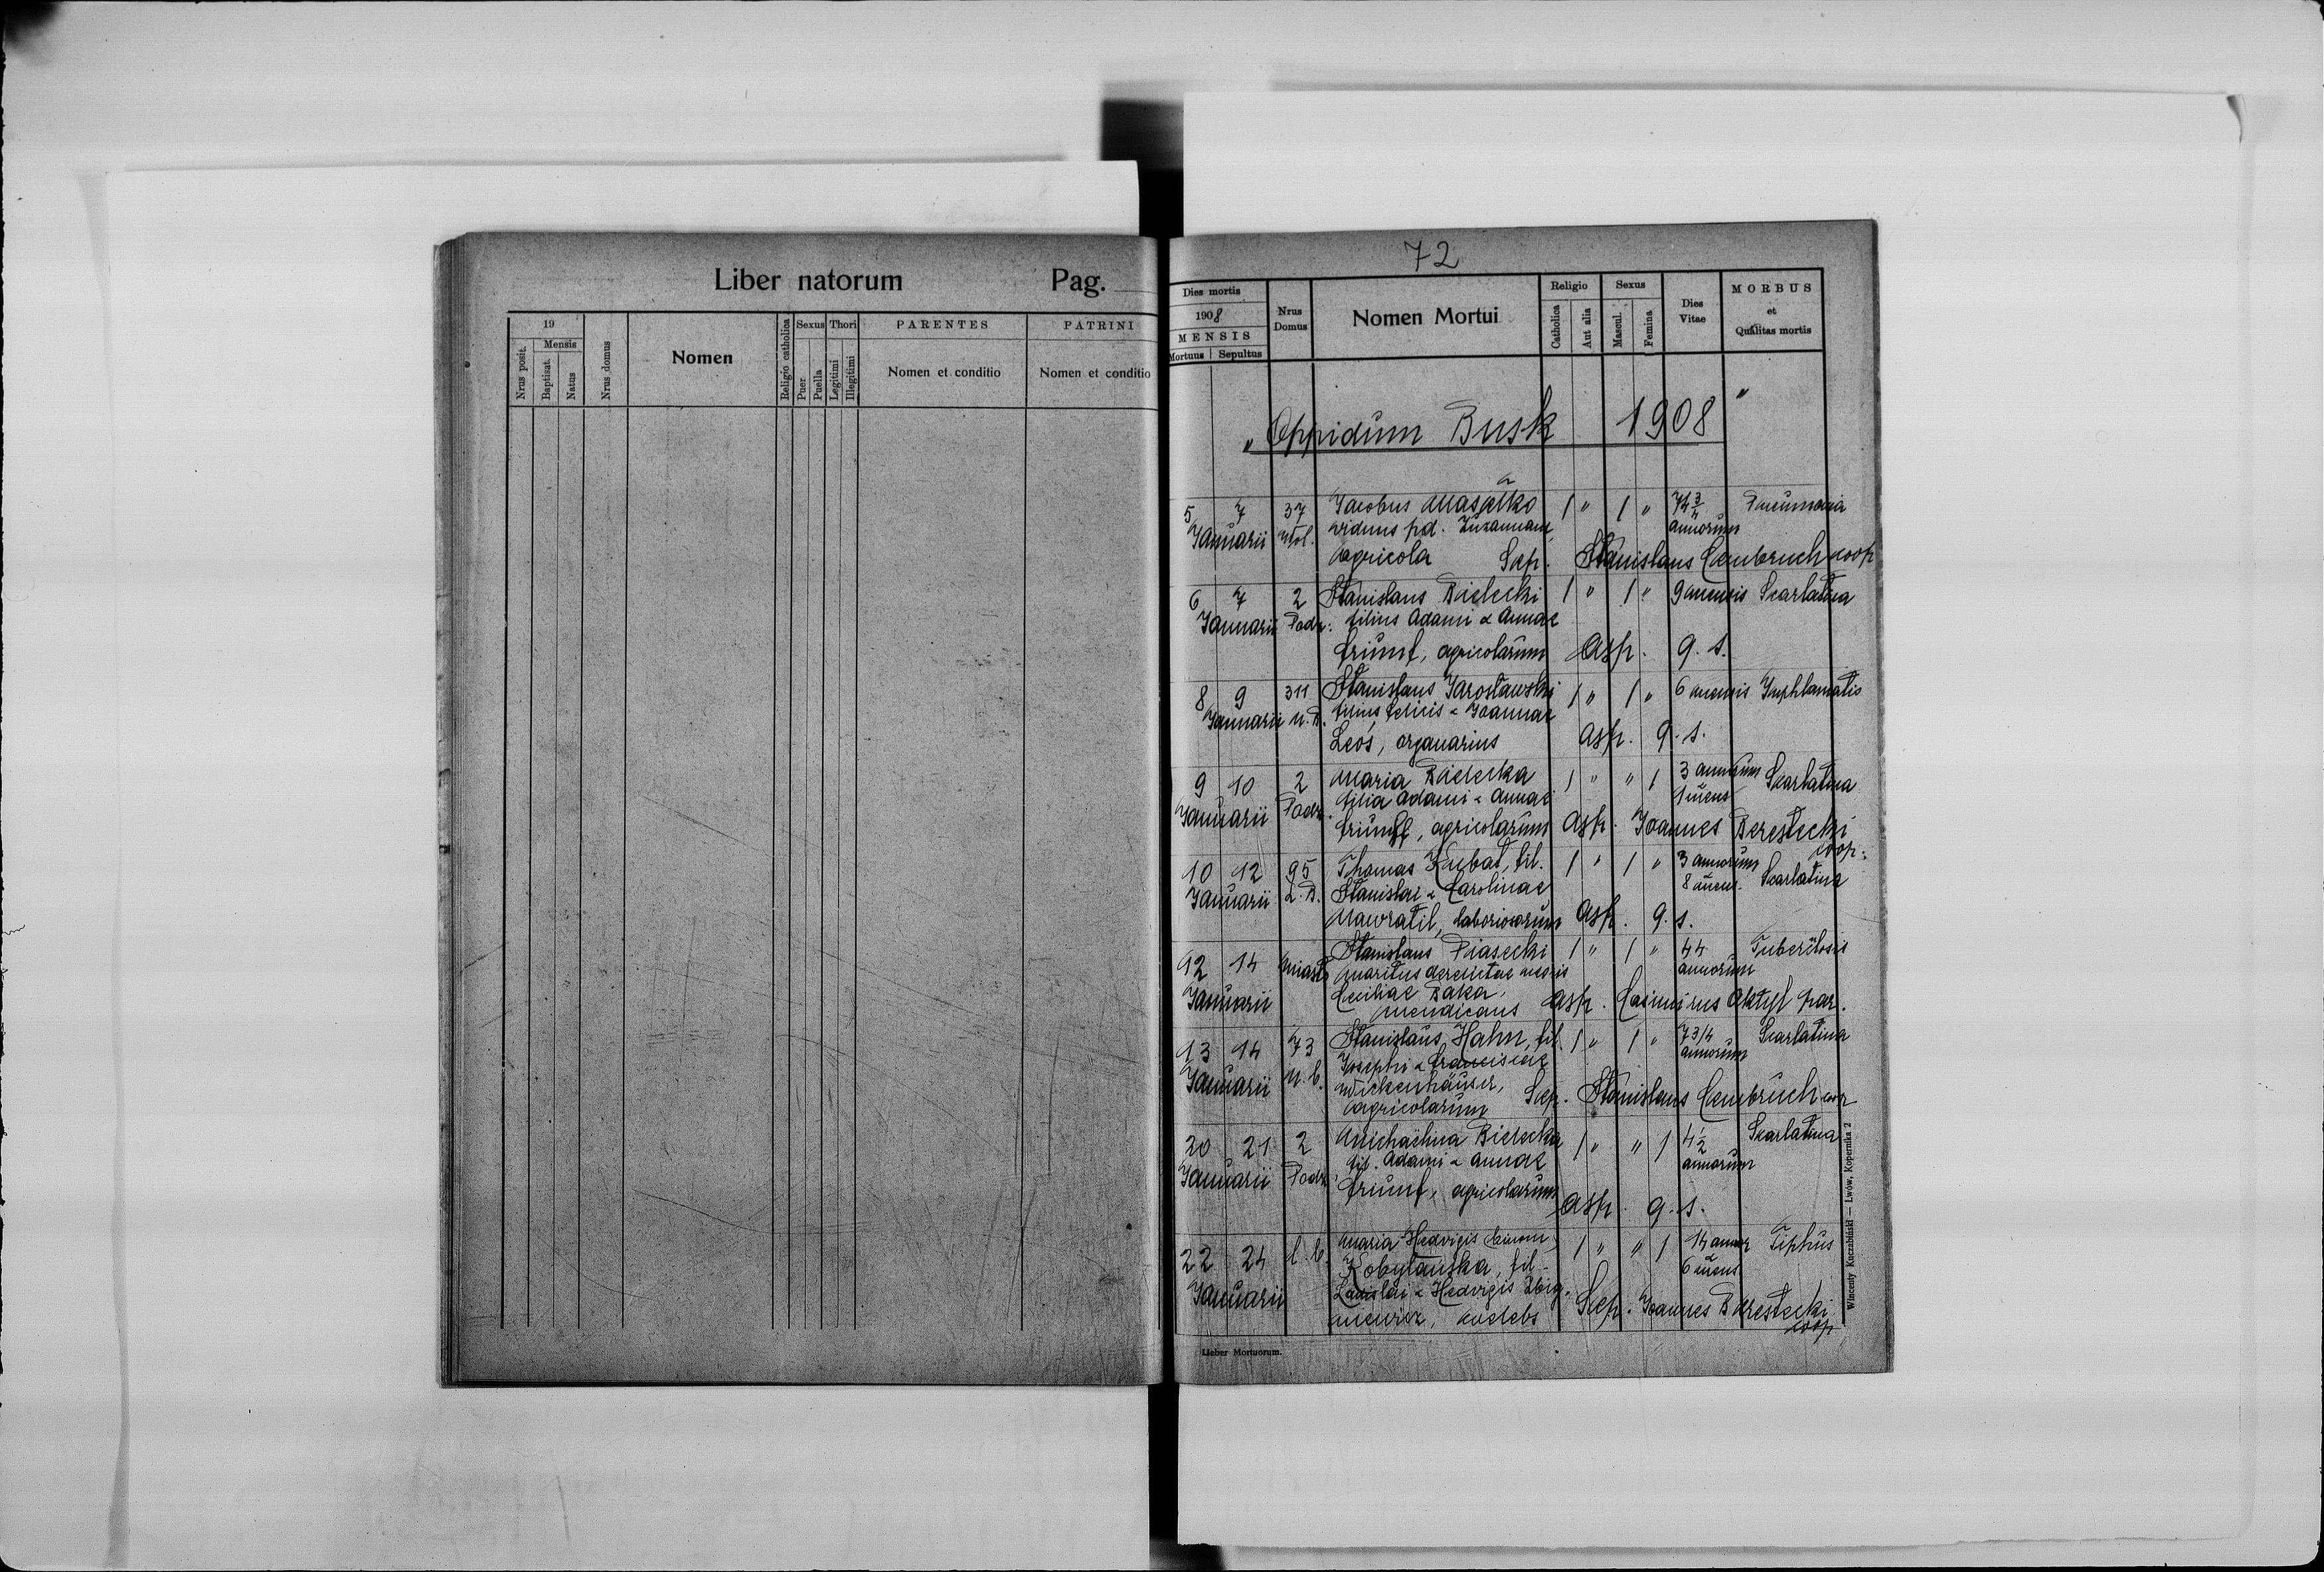 Liber natorum Pag.
19
Mensis
Nrus posit.
Baptisat.
Natus
Nrus domus
Nomen
Religio catholica
Sexus
Puer
Puella
Thori
Legitimi
Illegitimi
PARENTES
Nomen et conditio
PATRINI
Nomen et conditio
72
Dies mortis
1908
MENSIS
Mortuus Sepultus
Nrus Domus
Nomen Mortui
Religio
Catholica
Aut alia
Sexus
Mascul.
Femina
Dies Vitae
MORBUS
et
Qualitas mortis
"Oppidum Busk 1908"
5 7 37 Jacobus 1 " 1 " 74 3/4 Pneumonia
Januarii viduus pd. Zuzannae, annorum
agricola Sep. Stanislaus Cembruch coop
6 7 2 Stanislaus Bielecki 1 " 1 " 9 mensis Scarlatina
Januarii Podz. filius Adami & Annae
Triumf, agricolarum Asp. q. s.
8 9 311 Stanislaus Jarosławski 1 " 1 " 6 mensis
Januarii N. B. filius Felicis & Joannae
Leos, organarius Asp. q. s.
9 10 2 Maria Bielecka 1 " " 1 3 annorum Scarlatina
Januarii Podz. filia Adami & Annae 1 mens
Triumf, agricolarum Asp. Joannes Berestecki
coop.
10 12 95 Thomas Kubat, fil. 1 " 1 " 3 annorum
Januarii D. B. Stanislai & Carolinae 8 mens. Scarlatina
Nawratil, laboriosorum Asp. q. s.
12 14 Stanislaus Piasecki 1 " 1 " 44 Tuberculosis
Januarii maritus derelictae annorum
Ceciliae Baka,
mendicans Asp. Casimirus par.
13 14 73 Stanislaus Hahn, fil. 1 " 1 " 7 3/4 Scarlatina
Januarii N. B. Josephi & Franciscae annorum
Wickenhäuser,
agricolarum Sep. Stanislaus Cembruch coop
20 21 2 Michaelina Bielecka 1 " " 1 4 1/2 Scarlatina
Januarii Podz. fil. Adami & Annae annorum
Triumf, agricolarum
Asp. q. s.
22 24 Maria Hedvigis (binom) 1 " " 1 14 annor Tiphus
Kobylańska, fil. 6 mens
Januarii Ladislai & Hedvigis Zbig-
niewicz, coelebs Sep. Joannes Berestecki
coop
Lieber Mortuorum.
Wincenty Kuczabiński — Lwów, Kopernika 2